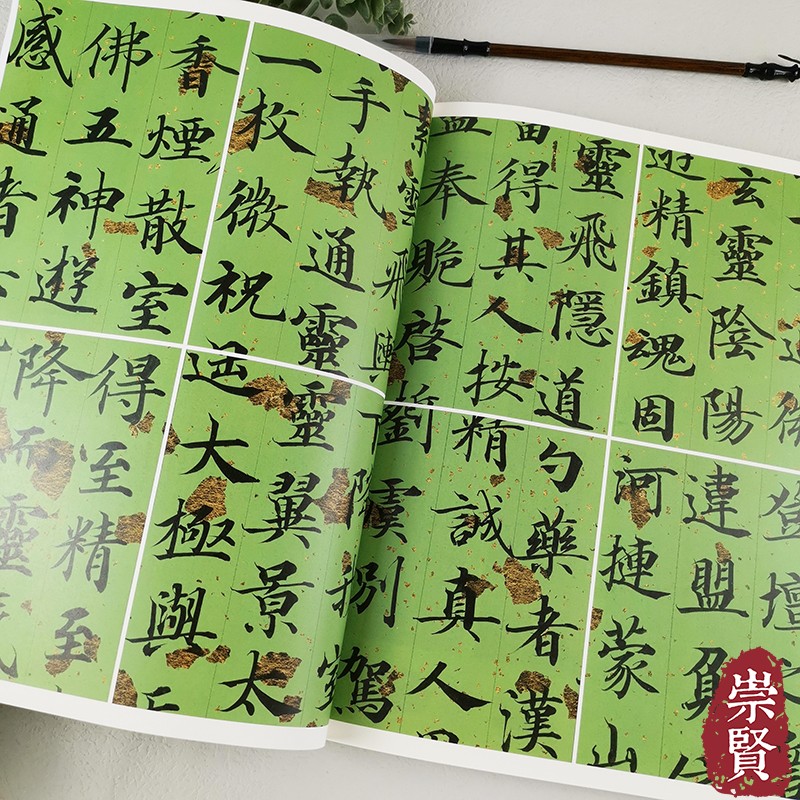 玄靈陰陽
遊精鎮魂固
靈飛隱道
留得其人按
奉
啓
登壇
違盟負
河摙蒙山
勺藥者漢
精誠真人
劉
捌駕
手執通靈
一枚微祝
香煙散室
佛五神遊
感通者
靈翼景太
大極與
得至精至
降而靈
崇賢